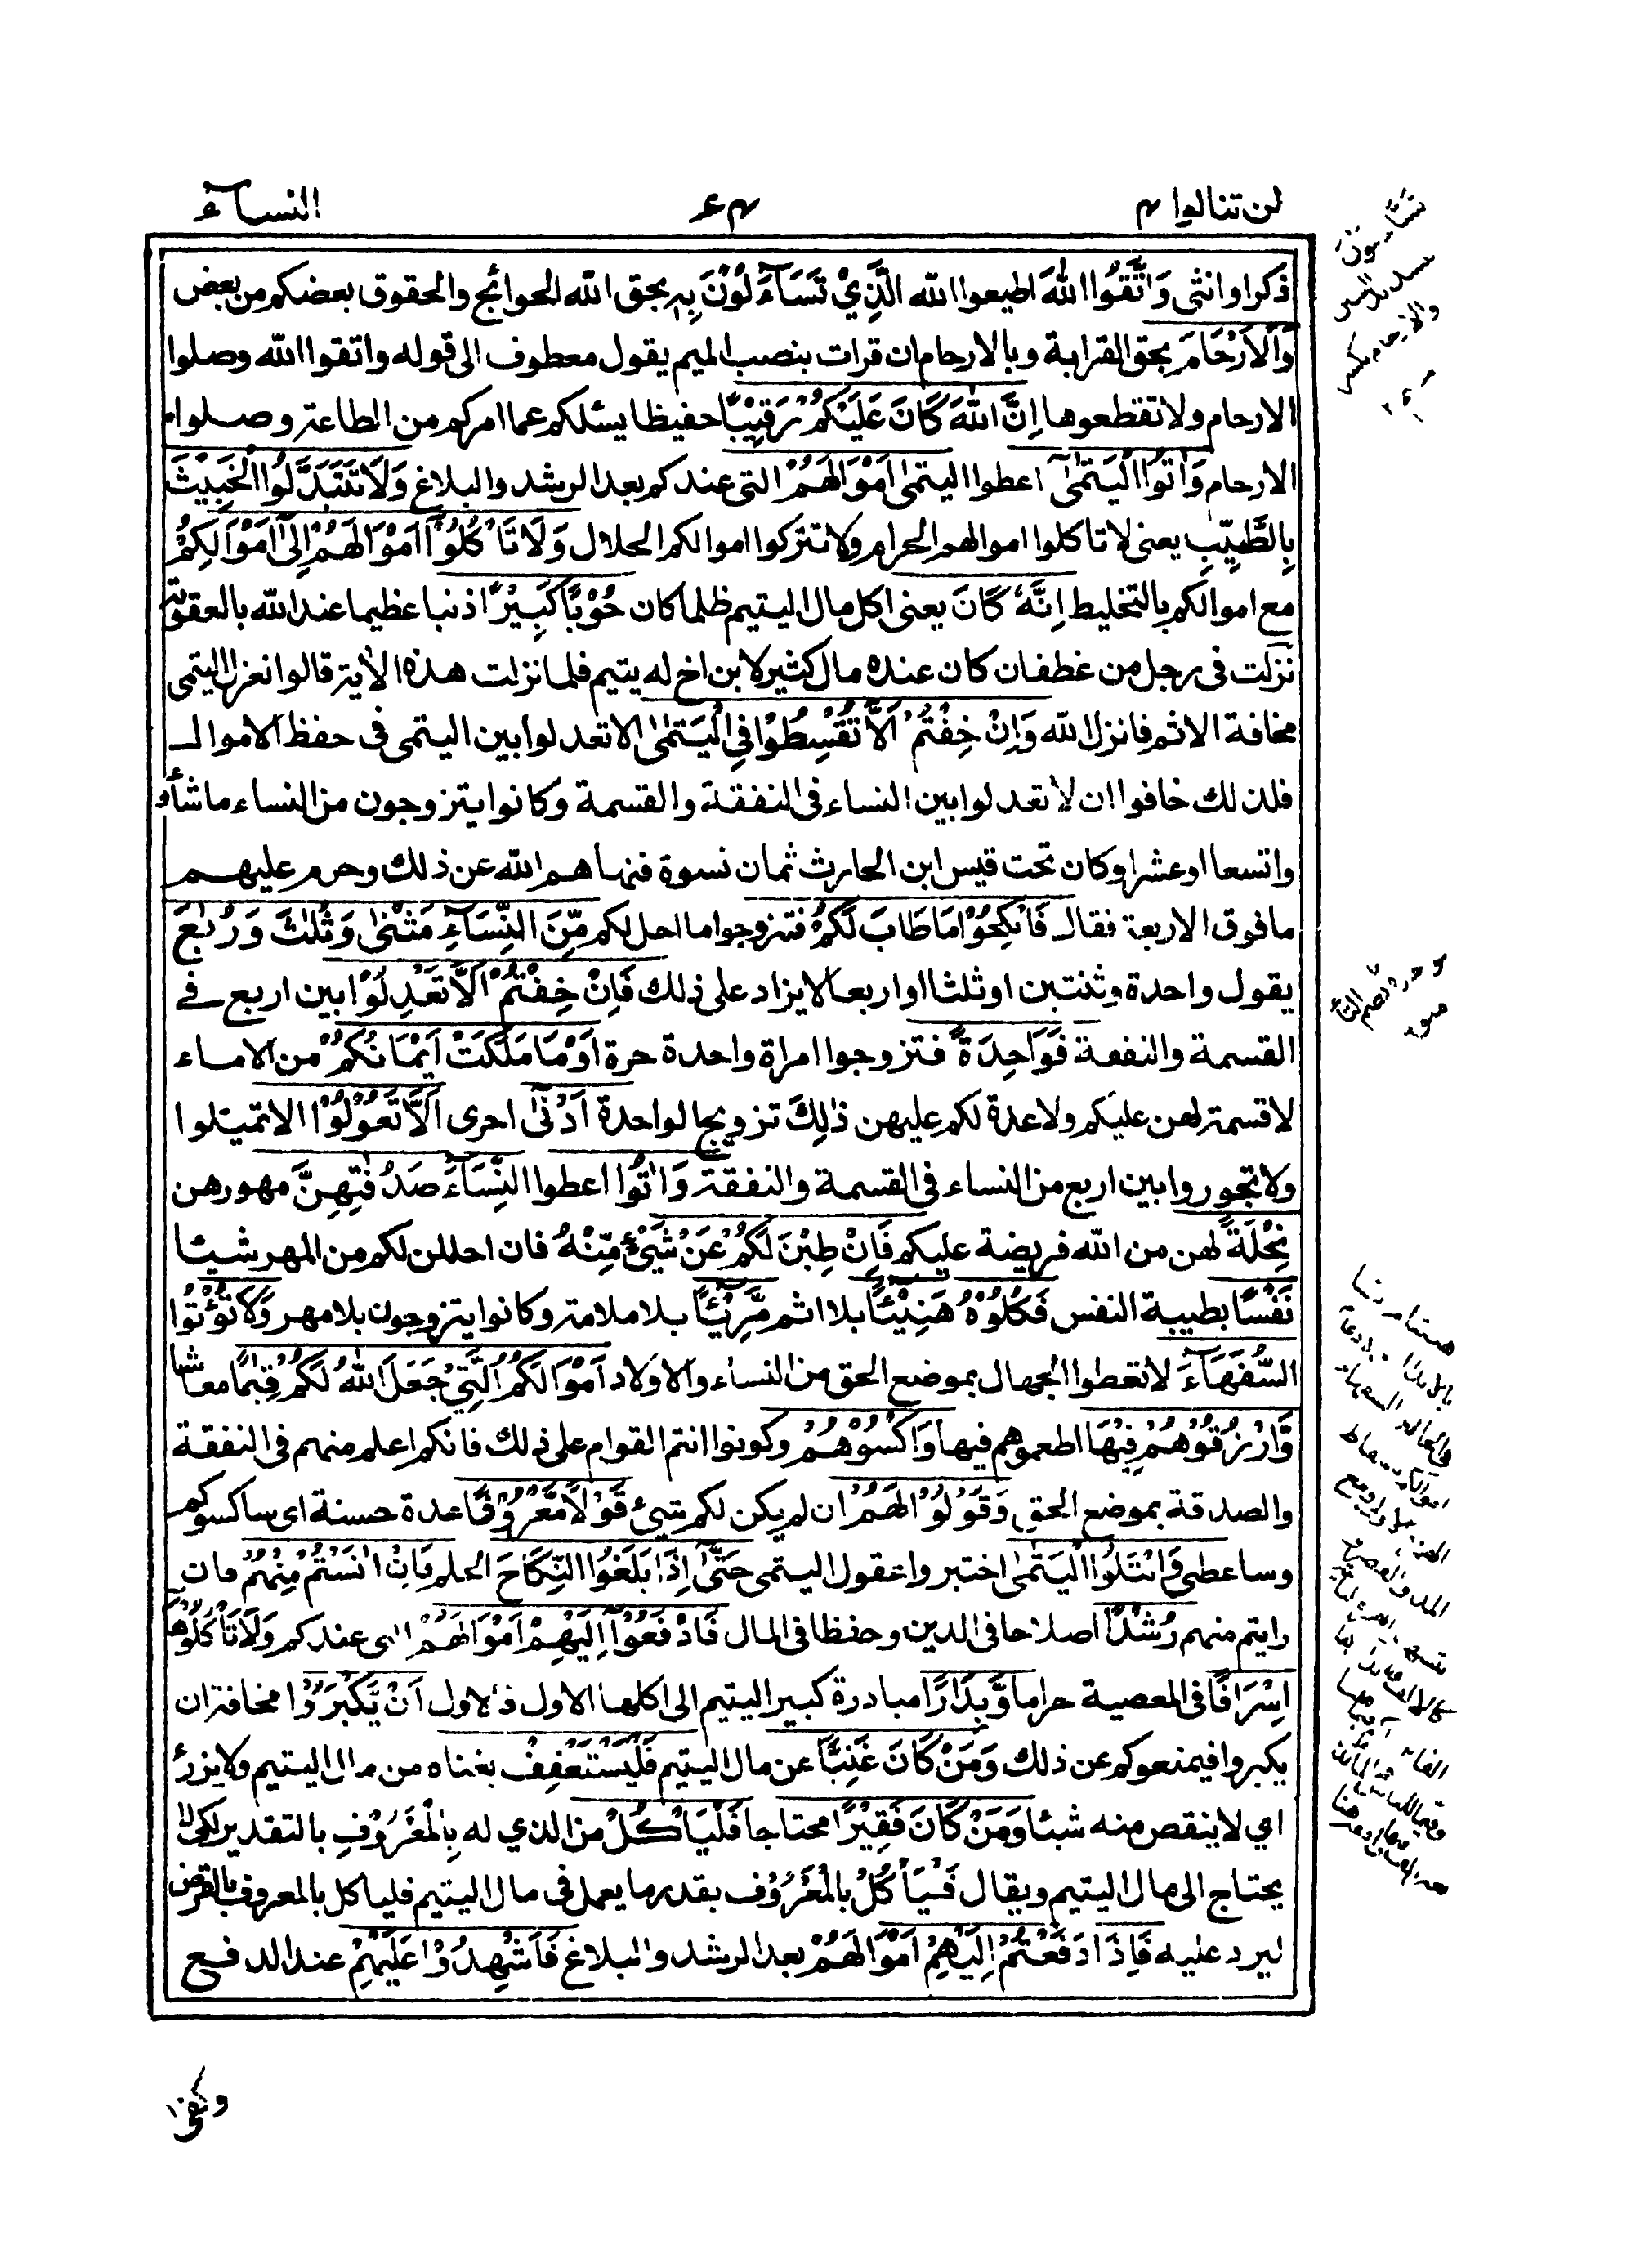 لن تنالوا ٤
النساء
ذكرا وانثى وَاتَّقُوا اللهَ اطيعوا الله الَّذِيْ تَسَآءَلُوْنَ بِهٖ بحق الله الحوائج والحقوق بعضكم من بعض
وَالْاَرْحَامَ بحق القرابة وبالارحام ان قرات بنصب الميم يقول معطوف الى قوله واتقوا الله وصلوا
الارحام ولا تقطعوها اِنَّ اللهَ كَانَ عَلَيْكُمْ رَقِيْبًا حفيظا يسئلكم عما امركم من الطاعة وصلوا
الارحام وَاٰتُوا الْيَتٰمٰى اعطوا اليتمى اَمْوَالَهُمْ التى عندكم بعد الرشد والبلاغ وَلَا تَتَبَدَّلُوا الْخَبِيْثَ
بِالطَّيِّبِ يعنى لا تاكلوا اموالهم الحرام ولا تتركوا اموالكم الحلال وَلَا تَاْكُلُوْٓا اَمْوَالَهُمْ اِلٰٓى اَمْوَالِكُمْ
مع اموالكم بالتخليط اِنَّهٗ كَانَ يعنى اكل مال اليتيم ظلما كان حُوْبًا كَبِيْرًا ذنبا عظيما عند الله بالعقوبة
نزلت فى رجل من غطفان كان عنده مال كثير لابن اخ له يتيم فلما نزلت هذه الاٰية قالوا نعزل اليتمى
مخافة الاثم فانزل الله وَاِنْ خِفْتُمْ اَلَّا تُقْسِطُوْا فِي الْيَتٰمٰى الا تعدلوا بين اليتمى فى حفظ الاموال
فلذلك خافوا ان لا تعدلوا بين النساء فى النفقة والقسمة وكانوا يتزوجون من النساء ما شاؤ
واتسعا او عشرا وكان تحت قيس ابن الحارث ثمان نسوة فنهاهم الله عن ذلك وحرم عليهم
ما فوق الاربعة فقال فَانْكِحُوْا مَا طَابَ لَكُمْ فتزوجوا ما احل لكم مِّنَ النِّسَآءِ مَثْنٰى وَثُلٰثَ وَرُبٰعَ
يقول واحدة وثنتين او ثلثا او اربعا لا يزاد على ذلك فَاِنْ خِفْتُمْ اَلَّا تَعْدِلُوْا بين اربع فے
القسمة والنفعة فَوَاحِدَةً فتزوجوا امراة واحدة حرة اَوْ مَا مَلَكَتْ اَيْمَانُكُمْ من الاماء
لا قسمة لهن عليكم ولا عدة لكم عليهن ذٰلِكَ تزويجا لواحدة اَدْنٰٓى احرى اَلَّا تَعُوْلُوْا الا تميلوا
ولا تجوروا بين اربع من النساء فى القسمة والنفقة وَاٰتُوا اعطوا النِّسَآءَ صَدُقٰتِهِنَّ مهورهن
نِحْلَةً لهن من الله فريضة عليكم فَاِنْ طِبْنَ لَكُمْ عَنْ شَيْءٍ مِّنْهُ فان احللن لكم من المهر شيئا
نَفْسًا بطيبة النفس فَكُلُوْهُ هَنِيْٓئًا بلا اثم مَّرِيْٓئًا بلا ملامة وكانوا يتزوجون بلا مهر وَلَا تُؤْتُوا
السُّفَهَآءَ لا تعطوا الجهال بموضع الحق من النساء والاولاد اَمْوَالَكُمُ الَّتِيْ جَعَلَ اللهُ لَكُمْ قِيٰمًا معاشا
وَّارْزُقُوْهُمْ فِيْهَا اطعموهم فيها وَاكْسُوْهُمْ وكونوا انتم القوام على ذلك فانكم اعلم منهم فى النفقة
والصدقة بموضع الحق وَقُوْلُوْا لَهُمْ ان لم يكن لكم شيئ قَوْلًا مَّعْرُوْفًا عدة حسنة اى ساكسوكم
وساعطى وَابْتَلُوا الْيَتٰمٰى اختبروا عقول اليتمى حَتّٰٓى اِذَا بَلَغُوا النِّكَاحَ الحلم فَاِنْ اٰنَسْتُمْ مِّنْهُمْ فان
رايتم منهم رُشْدًا اصلاحا فى الدين وحفظا فى المال فَادْفَعُوْٓا اِلَيْهِمْ اَمْوَالَهُمْ التى عندكم وَلَا تَاْكُلُوْهَآ
اِسْرَافًا فى المعصية حراما وَّبِدَارًا مبادرة كبير اليتيم الى اكلها الاول فالاول اَنْ يَّكْبَرُوْا مخافة ان
يكبروا فيمنعوكم عن ذلك وَمَنْ كَانَ غَنِيًّا عن مال اليتيم فَلْيَسْتَعْفِفْ بغناه من مال اليتيم ولا يزرأ
اي لا ينقص منه شيئا وَمَنْ كَانَ فَقِيْرًا محتاجا فَلْيَاْكُلْ من الذي له بِالْمَعْرُوْفِ بالتقدير لكيلا
يحتاج الى مال اليتيم ويقال فَلْيَاْكُلْ بِالْمَعْرُوْفِ بقدر ما يعمل فى مال اليتيم فلياكل بالمعروف بالقرض
ليرد عليه فَاِذَا دَفَعْتُمْ اِلَيْهِمْ اَمْوَالَهُمْ بعد الرشد والبلاغ فَاَشْهِدُوْا عَلَيْهِمْ عند الدفع
وكفى